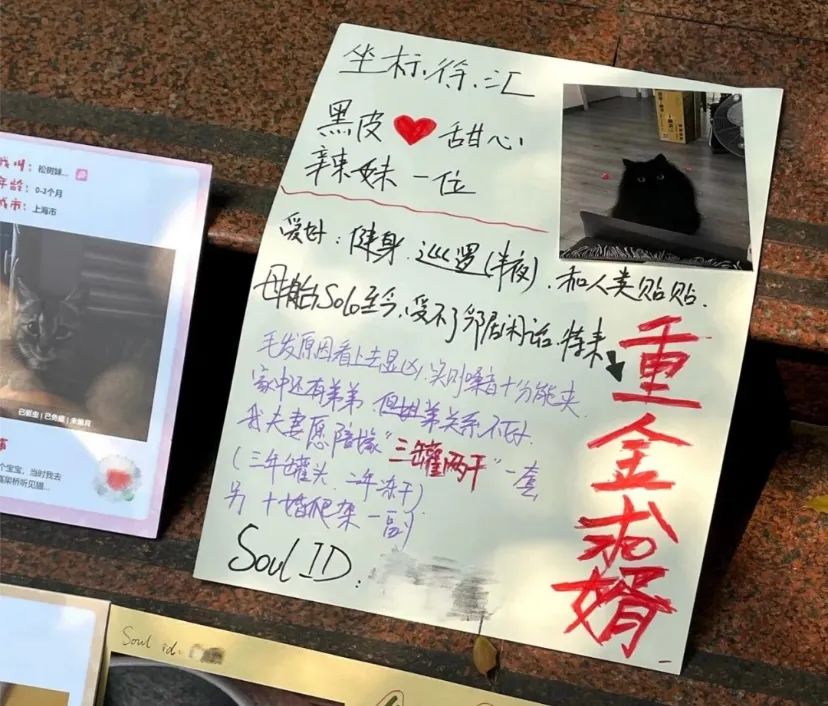 坐标.徐.汇
黑皮❤甜心
辣妹一位
爱好：健身.巡逻(半夜).和人类贴贴.
母胎Solo至今,受不了邻居闲话.特来
重金求婿
毛发原因看上去显凶,实则嗓音十分能夹.
家中还有弟弟,但姐弟关系不好.
我夫妻愿陪嫁"三罐两干"一套,
(三年罐头、二年冻干)
另 十婚爬架一副
Soul ID:
松树妹...
年龄: 0-3个月
城市: 上海市
已驱虫 | 已免疫 | 未绝育
事
个宝宝，当时我去
高架桥听见猫...
Soul id: